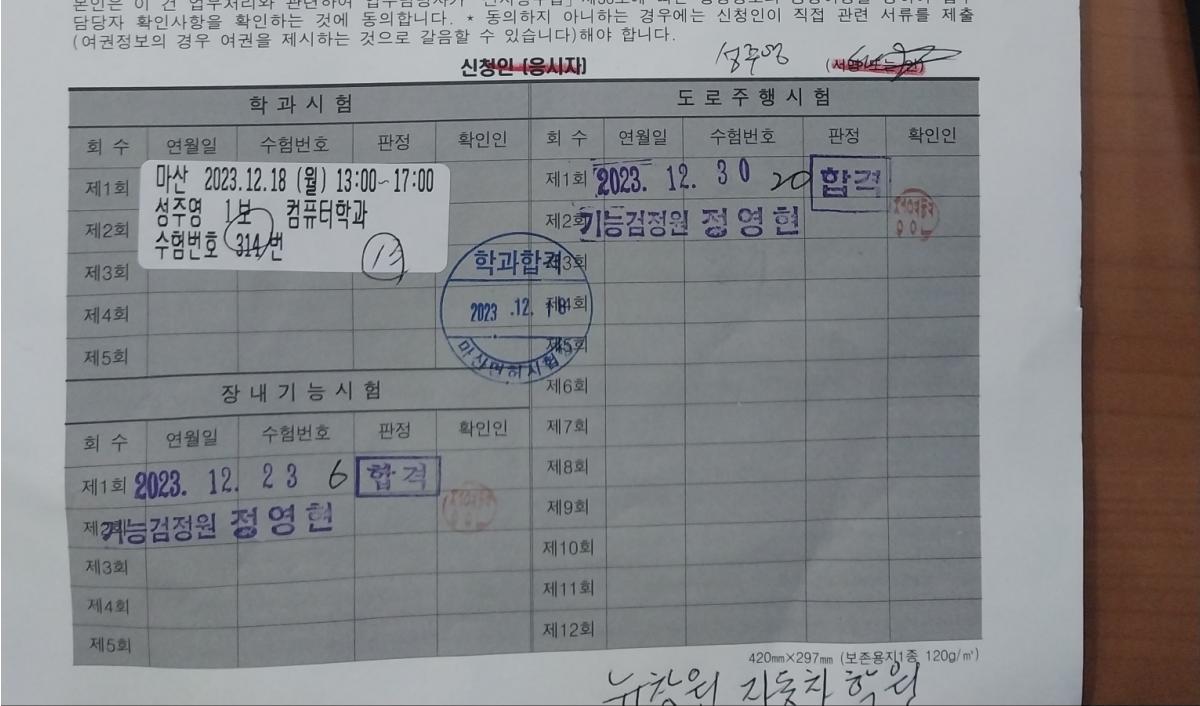 담당자 확인사항을 확인하는 것에 동의합니다. * 동의하지 아니하는 경우에는 신청인이 직접 관련 서류를 제출
(여권정보의 경우 여권을 제시하는 것으로 갈음할 수 있습니다)해야 합니다.
신청인 (응시자) 성주영
학과시험
회 수 연월일 수험번호 판정 확인인
제1회
제2회
제3회
제4회
제5회
마산 2023.12.18 (월) 13:00~17:00
성주영 1보 컴퓨터학과
수험번호 314번
학과합격
2023 .12. 18
마산면허시험
장내기능시험
회 수 연월일 수험번호 판정 확인인
제1회 2023. 12. 23 6 합격
기능검정원 정영현
제3회
제4회
제5회
도로주행시험
회 수 연월일 수험번호 판정 확인인
제1회 2023. 12. 30 20 합격
제2회 기능검정원 정영현
제3회
제4회
제5회
제6회
제7회
제8회
제9회
제10회
제11회
제12회
420㎜×297㎜ (보존용지1종 120g/㎡)
뉴창원 자동차 학원